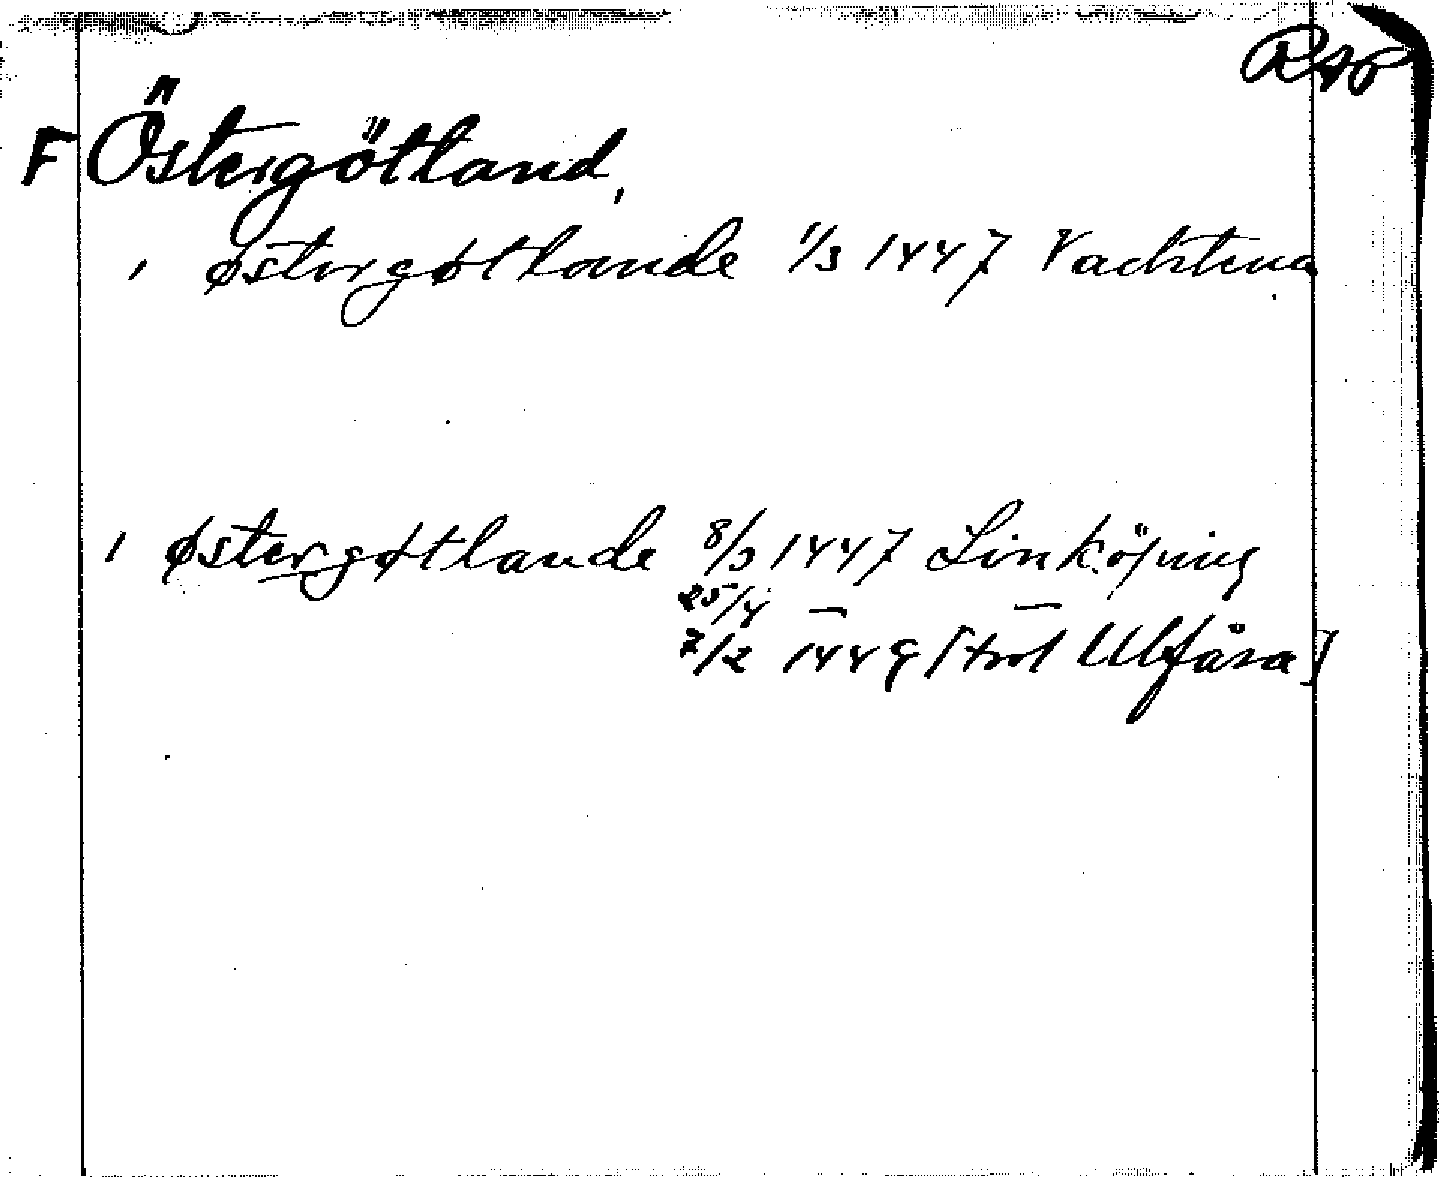 RAP
F Östergötland,
i østergøtlande 1/3 1447 Vadstena
i østergøtlande 8/3 1447 Linköping
25/4 — —
7/2 1449 [trol Ulfåsa]